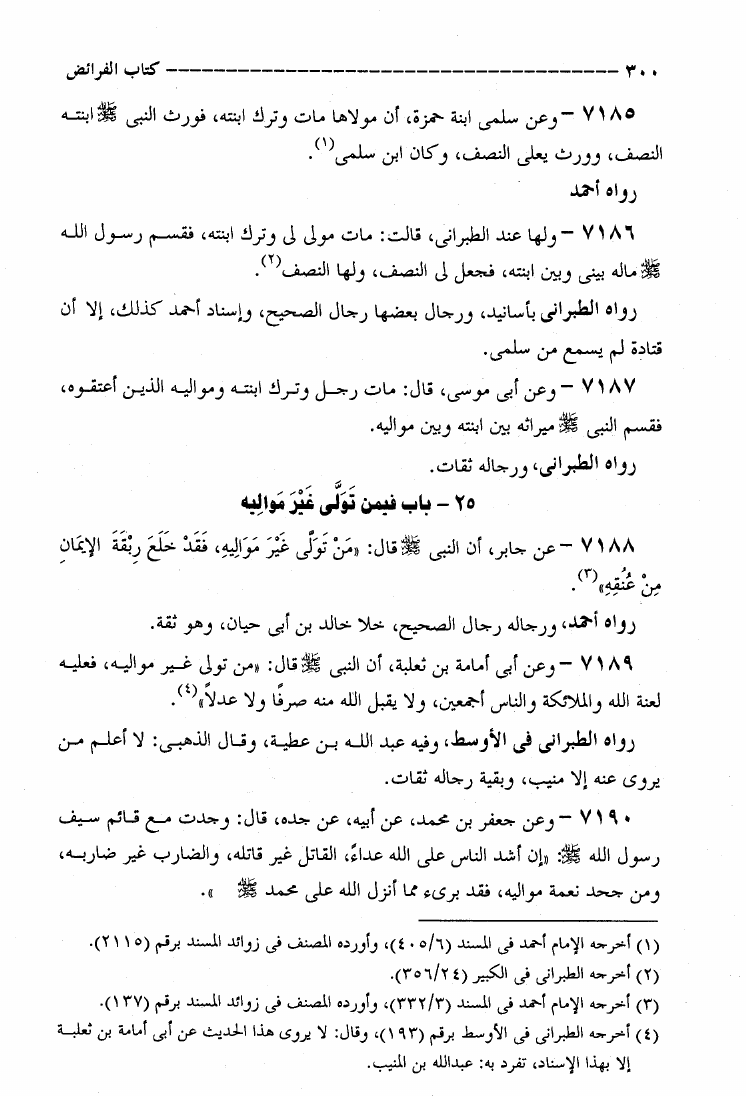 ٣٠٠ ------------------------------------- كتاب الفرائض
٧١٨٥ – وعن سلمى ابنة حمزة، أن مولاها مات وترك ابنته، فورث النبى ﷺ ابنتـه
النصف، وورث يعلى النصف، وكان ابن سلمى(١).
رواه أحمد
٧١٨٦ – ولها عند الطبرانى، قالت: مات مولى لى وترك ابنته، فقسـم رسـول اللـه
ﷺ ماله بينى وبين ابنته، فجعل لى النصف، ولها النصف(٢).
رواه الطبرانى بأسانيد، ورجال بعضها رجال الصحيح، وإسناد أحمد كذلك، إلا أن
قتادة لم يسمع من سلمى.
٧١٨٧ – وعن أبى موسى، قال: مات رجـل وتـرك ابنتـه ومواليـه الذيـن أعتقـوه،
فقسم النبى ﷺ ميراثه بين ابنته وبين مواليه.
رواه الطبرانى، ورجاله ثقات.
٢٥ – باب فيمن تَوَلَّى غَيْرَ مَوالِيه
٧١٨٨ – عن جابر، أن النبى ﷺ قال: «مَنْ تَوَلَّى غَيْرَ مَوَالِيهِ، فَقَدْ خَلَعَ رِبْقَةَ الإِيمَانِ
مِنْ عُنُقِهِ»(٣).
رواه أحمد، ورجاله رجال الصحيح، خلا خالد بن أبى حيان، وهو ثقة.
٧١٨٩ – وعن أبى أمامة بن ثعلبة، أن النبى ﷺ قال: «من تولى غـير مواليـه، فعليـه
لعنة الله والملائكة والناس أجمعين، ولا يقبل الله منه صرفًا ولا عدلاً»(٤).
رواه الطبرانى فى الأوسط، وفيه عبد اللـه بـن عطيـة، وقـال الذهبـى: لا أعلـم مـن
يروى عنه إلا منيب، وبقية رجاله ثقات.
٧١٩٠ – وعن جعفر بن محمد، عن أبيه، عن جده، قال: وجدت مـع قـائم سـيف
رسول الله ﷺ: «إن أشد الناس على الله عداءً، القاتل غير قاتله، والضارب غير ضاربـه،
ومن جحد نعمة مواليه، فقد برىء مما أنزل الله على محمد ﷺ ».
(١) أخرجه الإمام أحمد فى المسند (٤٠٥/٦)، وأورده المصنف فى زوائد المسند برقم (٢١١٥).
(٢) أخرجه الطبرانى فى الكبير (٣٥٦/٢٤).
(٣) أخرجه الإمام أحمد فى المسند (٣٣٢/٣)، وأورده المصنف فى زوائد المسند برقم (١٣٧).
(٤) أخرجه الطبرانى فى الأوسط برقم (١٩٣)، وقال: لا يروى هذا الحديث عن أبى أمامة بن ثعلبـة
إلا بهذا الإسناد، تفرد به: عبدالله بن المنيب.